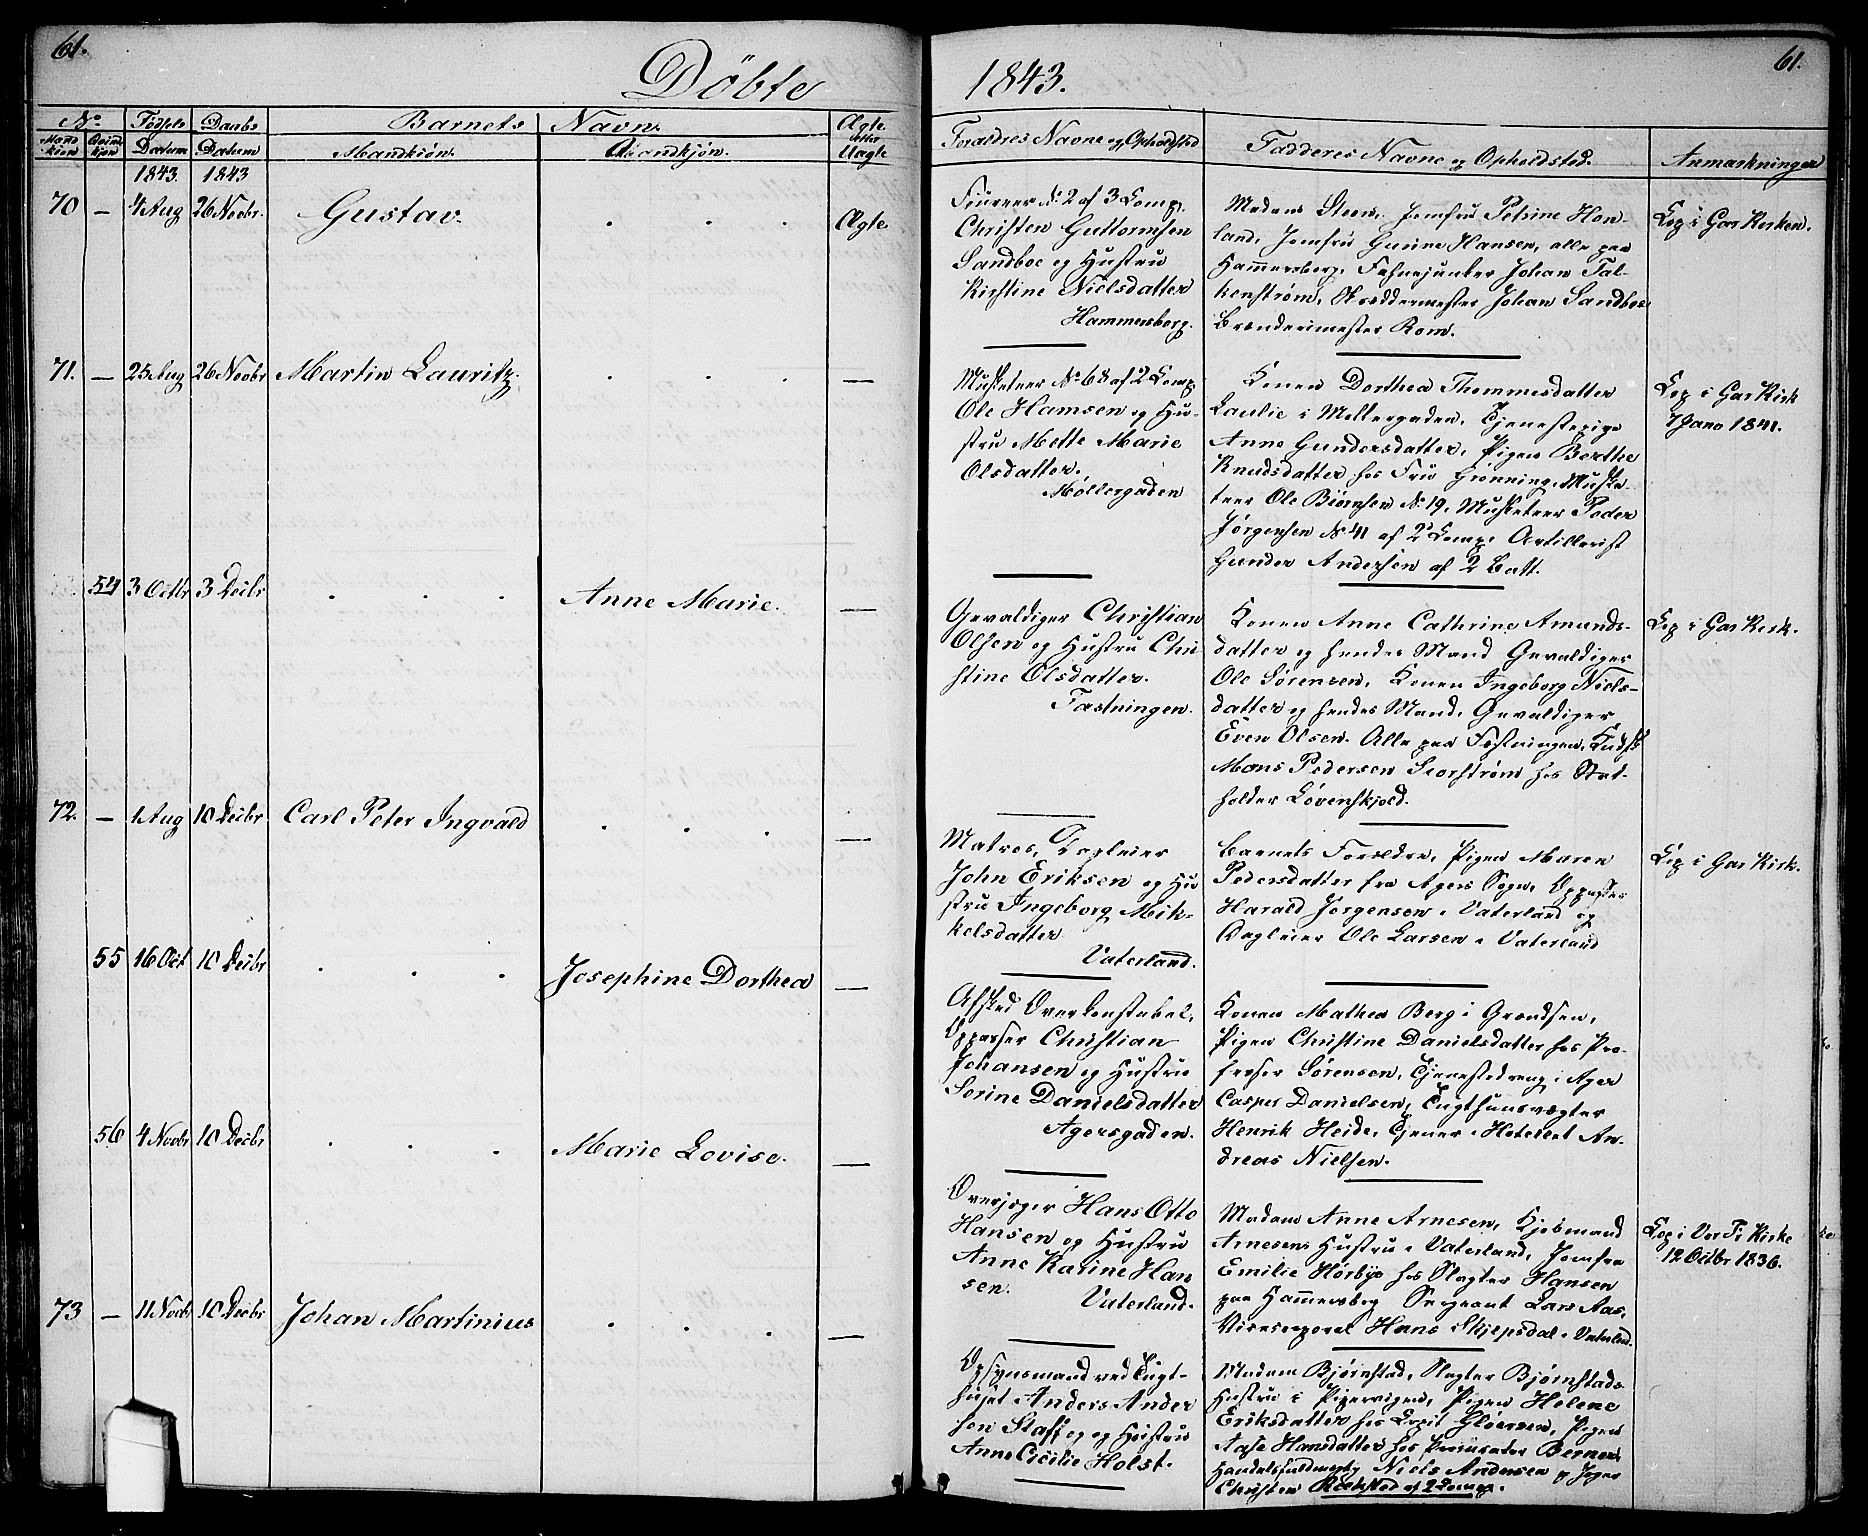 61.
Döbte
1843.
61.
No
Fødsels
Daabs
Barnets Navn.
Ægte
eller
Uægte
Mandkiøn
Qvindkjøn
Datum
Datum
Mandkiön.
Qvandkjön.
Foraldres Navne og Opholdsted
Fadderes Navne og Opholdsted.
Anmærkninger
1843.
1843
70 – 4 Aug 26 Novbr. Gustav. Ægte
Foureer No 2 af 3 Comp.
Christen Guttormsen
Sandboe og Hustru
Kirstine Nielsdatter
Hammersborg.
Madam Steen, Jomfru Petrine Hov-
land, Jomfru Gurine Hansen, alle paa
Hammersberg, Fahnejunker Johan Fal-
kenstrøm, Skræddermester Johan Sandboe
Brænderimester Rom.
Dep i Gar Kirken.
71. – 25 Aug 26 Novbr Martin Lauritz. –
Musketeer No 68 af 2 Comp
Ole Hamsen og Hu-
stru Mette Marie
Olsdatter.
Møllergaden
Konen Dorthea Thommesdatter
Laulie i Møllergaden, Tjenestepige
Anne Gundersdatter, Pigen Berthe
Knudsdatter hos Frue Grønning, Muske
teer Ole Biørnsen No 19, Musketeer Peder
Jørgensen No 41 af 2 Comp. Artillerist
Gunder Andersen af 2 Batt.
Dep i Gar Kirk
7 Jano 1841.
54 3 Octbr 3 Decbr Anne Marie. –
Gevaldiger Christian
Olsen og Hustru Chri
stine Olsdatter.
Fæstningen.
Konen Anne Cathrine Amunds-
datter og hendes Mand Gevaldiger
Ole Sörensen, Konen Ingeborg Niels-
datter og hendes Mand, Gevaldiger
Even Olsen. Alle paa Festningen, Kudsk
Mons Pedersen Storstrøm hos Stat-
holder Løvenskjold.
Dep i Gar Kirk.
72. – 1 Aug 10 Decbr Carl Peter Ingvald –
Matros, Dagleier
John Eriksen og Hu
stru Ingeborg Mik-
kelsdatter
Vaterland.
Barnets Forældre, Pigen Maren
Pedersdatter fra Agers Sogn, Oppasser
Harald Jorgensen i Vaterland og
Dagleier Ole Larsen i Vaterland
Dep i Gar Kirk.
55 16 Oct 10 Decbr Josephine Dorthea –
Afsked Overkonstabel,
Oppasser Christian
Johansen og Hustru
Sorine Danielsdatter
Agersgaden.
Konen Mathea Berg i Grændsen,
Pigen Christine Danielsdatter hos Pro-
fessor Sörensen, Tjenestedreng i Ager
Casper Danielsen, Tugthuusvægter
Henrik Heide, Tjener i Hotellet An-
dreas Nielsen.
56 4 Novbr 10 Decbr Marie Lovise. –
Overjæger Hans Otto
Hansen og Hustru
Anne Karine Han
sen.
Vaterland.
Madam Anne Arnesen, Kjøbmand
Arnesens Hustru i Vaterland, Jomfru
Emilie Hörbye hos Slagter Hansen
paa Hammersberg Sergeant Lars Aas,
Vicecorporal Hans Skjepsdal i Vaterland.
Dep i Vor F. Kirke
12 Octbr 1836.
73 – 11 Novbr 10 Decbr Johan Martinius –
Opsynsmand ved Tugt-
huset Anders Ander
sen Staff og Hustru
Anne Cicilie Holst.
Madam Bjørnstad, Slagter Bjørnstads
Hustru i Pipervigen, Pigen Helene
Eriksdatter hos Gløersen, Pigen
Aase Hansdatter hos Berner,
Niels Andersen
Christen af 2 Comp.